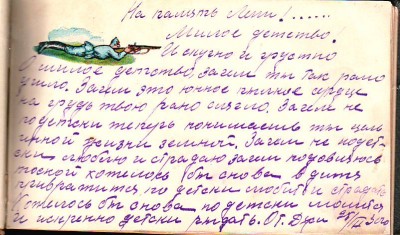 На память Лени!......
Милое детство!
И скучно и грустно
О милое детство, зачем ты так рано
ушло. Зачем это юное пылкое сердце
на грудь твою рано легло. Зачем не
подетски теперь понимаешь ты цель
жизни земной. Зачем не подет-
ски люблю и страдаю зачем
тоской хотелось бы снова в дитя
превратится по детски любить и страдать
Хотелось бы снова по детски молится
и искренно детски рыдать. От.